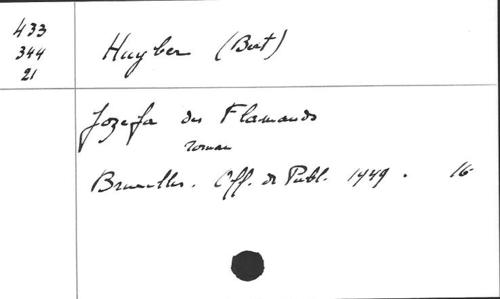 433
344
21
Huyber (Bert)
Jozefa des Flamands
roman
Bruxelles. Off. de Publ. 1949. 16